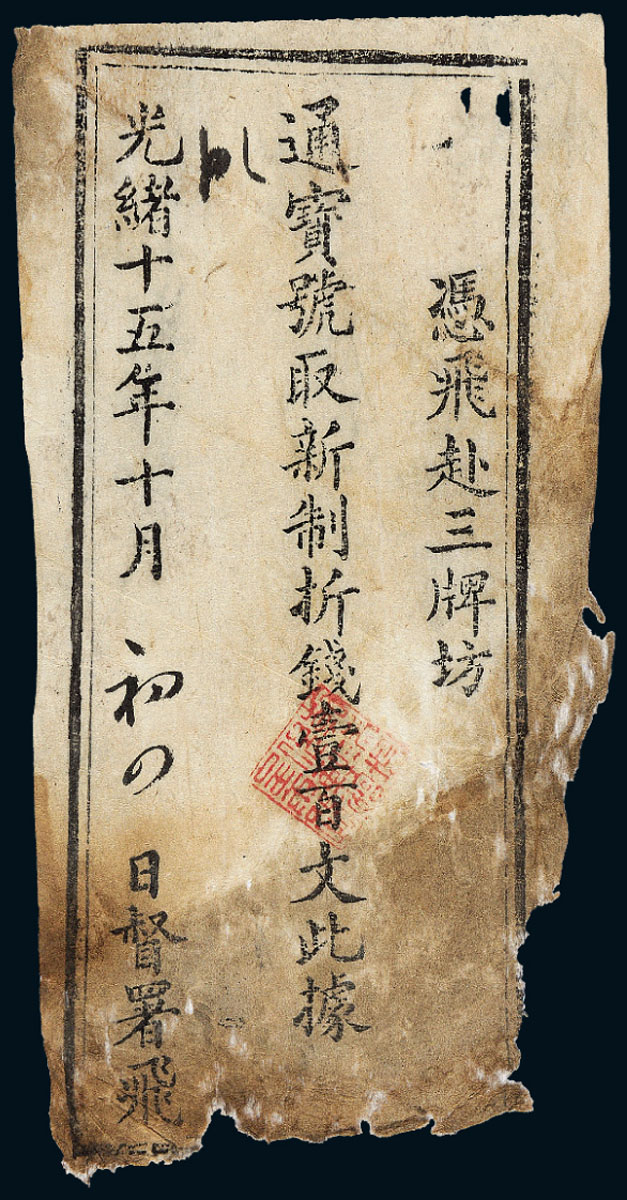 憑飛赴三牌坊
通寶號取新制折錢壹百文此據
光緒十五年十月初の日督署飛